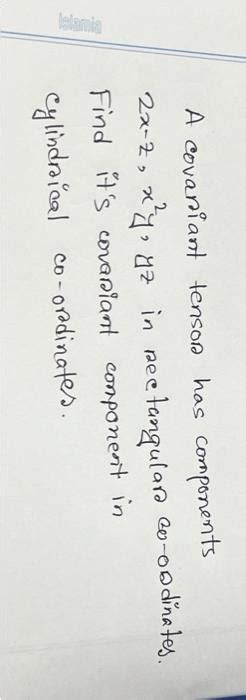 Islamia
A covariant tensor has components
2x-z, x²y, yz in rectangular co-ordinates.
Find it's covariant component in
cylindrical co-ordinates.